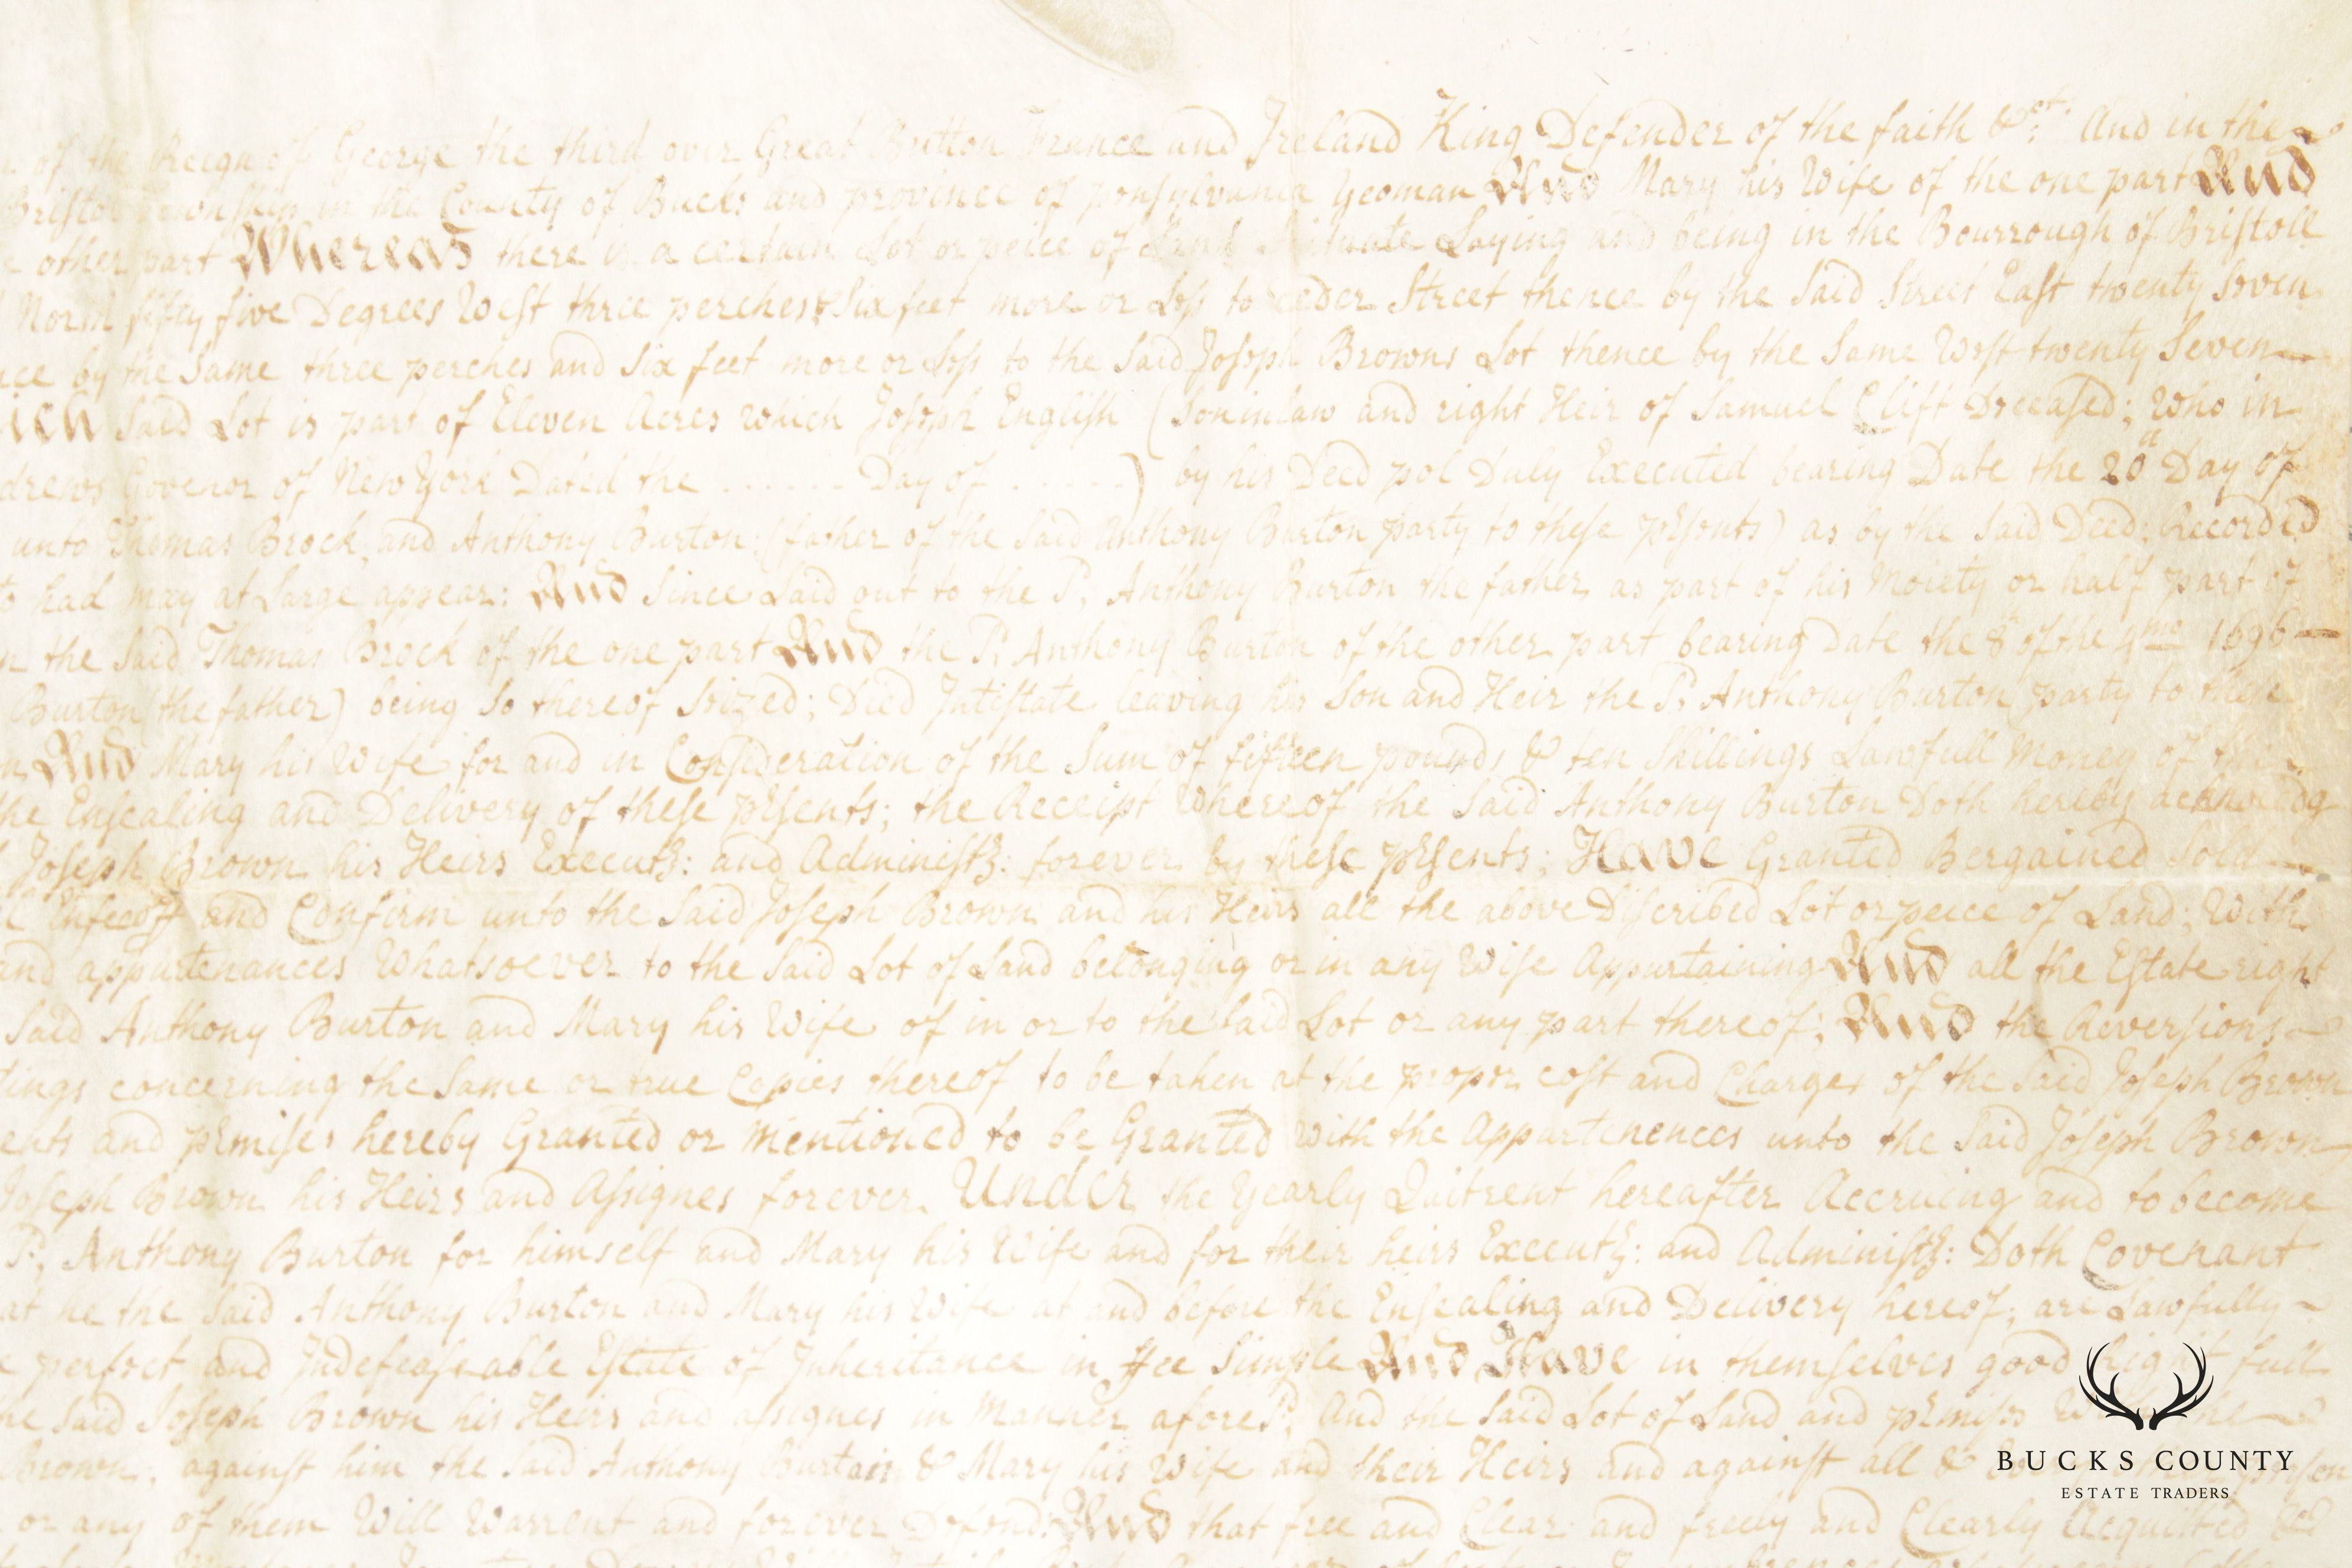 of the Reign of George the third over Great Britton France and Ireland King Defender of the faith &ct: And in the
Bristol Township in the County of Bucks and province of pensylvania Yeoman And Mary his Wife of the one part And
other part Whereas there is a certain Lot or peice of Land Scituate Laying and being in the Bourrough of Bristoll
North fifty five Degrees West three perches & Six feet more or Less to ceder Street thence by the Said Street East twenty Seven
by the Same three perches and Six feet more or Less to the Said Joseph Browns Lot thence by the Same West twenty Seven
Said Lot is part of Eleven Acres which Joseph English (Soninlaw and right Heir of Samuel Clift Deceased; Who in
Govenor of New York Dated the ...... Day of ......) by his Deed pol Duly Executed bearing Date the 20th Day of
unto Thomas Brock and Anthony Burton; (father of the Said Anthony Burton party to these presents) as by the Said Deed; Recorded
had may at Large appear: And Since Laid out to the Sd. Anthony Burton the father as part of his Moiety or half part of
the Said Thomas Brock of the one part And the Sd. Anthony Burton of the other part bearing Date the 8th of the 4mo 1696
Burton (the father) being So thereof Seized; Died Intestate leaving his Son and Heir the Sd. Anthony Burton party to these
And Mary his Wife for and in Consideration of the Sum of fifteen pounds & ten Shillings Lawfull Money of the
the Ensealing and Delivery of these presents; the Receipt Whereof the Said Anthony Burton Doth hereby acknowledg
Joseph Brown his Heirs Executrs: and Administrs: forever by these presents; Have Granted Bergained Sold
Enfeoff and Confirm unto the Said Joseph Brown and his Heirs all the above Discribed Lot or peice of Land; With
and appurtenances Whatsoever to the Said Lot of Land belonging or in any Wise Appurtaining And all the Estate right
Said Anthony Burton and Mary his Wife of in or to the Said Lot or any part thereof; And the Reversions
concerning the Same or true Copies thereof to be taken at the proper cost and Charges of the Said Joseph Brown
and premises hereby Granted or Mentioned to be Granted With the Appurtenences unto the Said Joseph Brown
Joseph Brown his Heirs and Assignes forever. Under the Yearly Quitrent hereafter Accruing and to become
Sd. Anthony Burton for himself and Mary his Wife and for their heirs Executrs: and Administrs: Doth Covenant
at he the Said Anthony Burton and Mary his Wife at and before the Ensealing and Delivery hereof; are Lawfully
perfect and Indefeaseable Estate of Inheritance in ffee Simple And Have in themselves good right full
Said Joseph Brown his Heirs and assignes in Manner aforeSd. And the Said Lot of Land and premises
Brown; against him the Said Anthony Burtain & Mary his Wife and their Heirs and against all &
or any of them Will Warrent and forever Defend And that free and Clear and freely and Clearly Acquitted
BUCKS COUNTY
ESTATE TRADERS